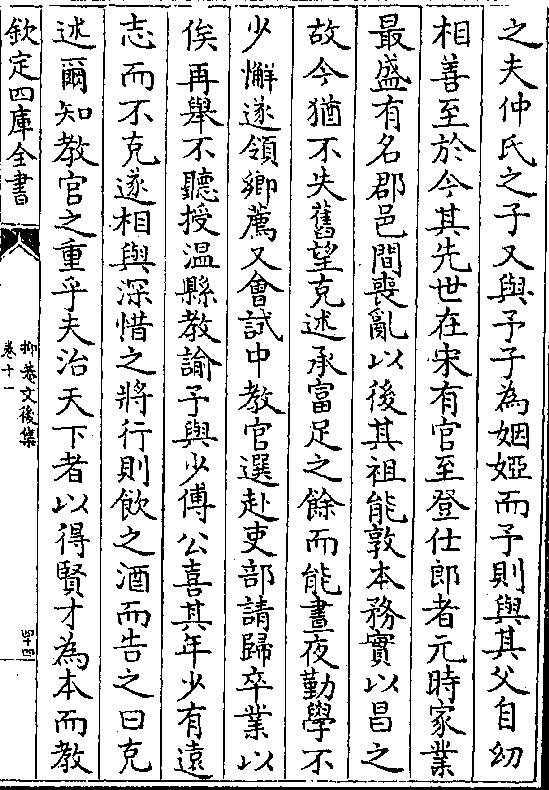 之夫仲氏之子又與予子為姻婭而予則與其父自㓜
相善至於今其先世在宋有官至登仕郎者元時家業
最盛有名郡邑間喪亂以後其祖能敦本務實以昌之
故今猶不失舊望克述承富足之餘而能晝夜勤學不
少懈遂領鄉薦又會試中教官選赴吏部請歸卒業以
俟再舉不聽授溫縣教諭予與少傅公喜其年少有遠
志而不克遂相與深惜之將行則飲之酒而告之曰克
述爾知教官之重乎夫治天下者以得賢才為本而教
欽定四庫全書
抑菴文後集
卷十一
四十四